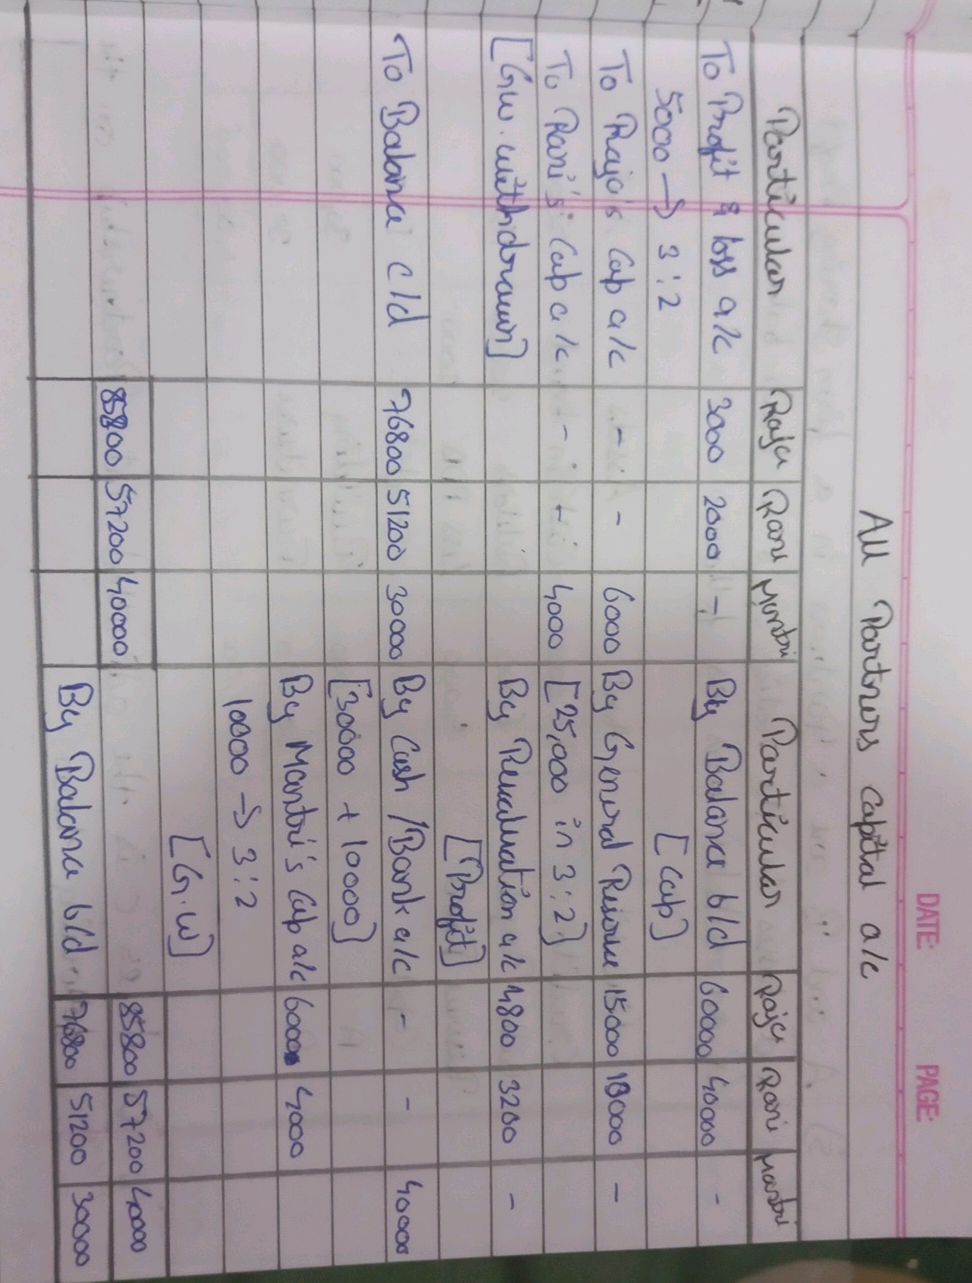 DATE: PAGE:
All Partners capital a/c
Particular Raja Rani Mantri Particular Raja Rani Mantri
To Profit & loss a/c 3000 2000 - By Balance b/d 60000 40000 -
5000 → 3:2 [Cap]
To Raja's Cap a/c - - 6000 By General Reserve 15000 10000 -
To Rani's Cap a/c - - 4000 [25,000 in 3:2]
[Gw. withdrawn] By Revaluation a/c 4800 3200 -
[Profit]
To Balance c/d 76800 51200 30000 By Cash/Bank a/c - - 40000
[30000 + 10000]
By Mantri's Cap a/c 6000 4000
10000 → 3:2
[G.W]
85800 57200 40000 85800 57200 40000
By Balance b/d 76800 51200 30000